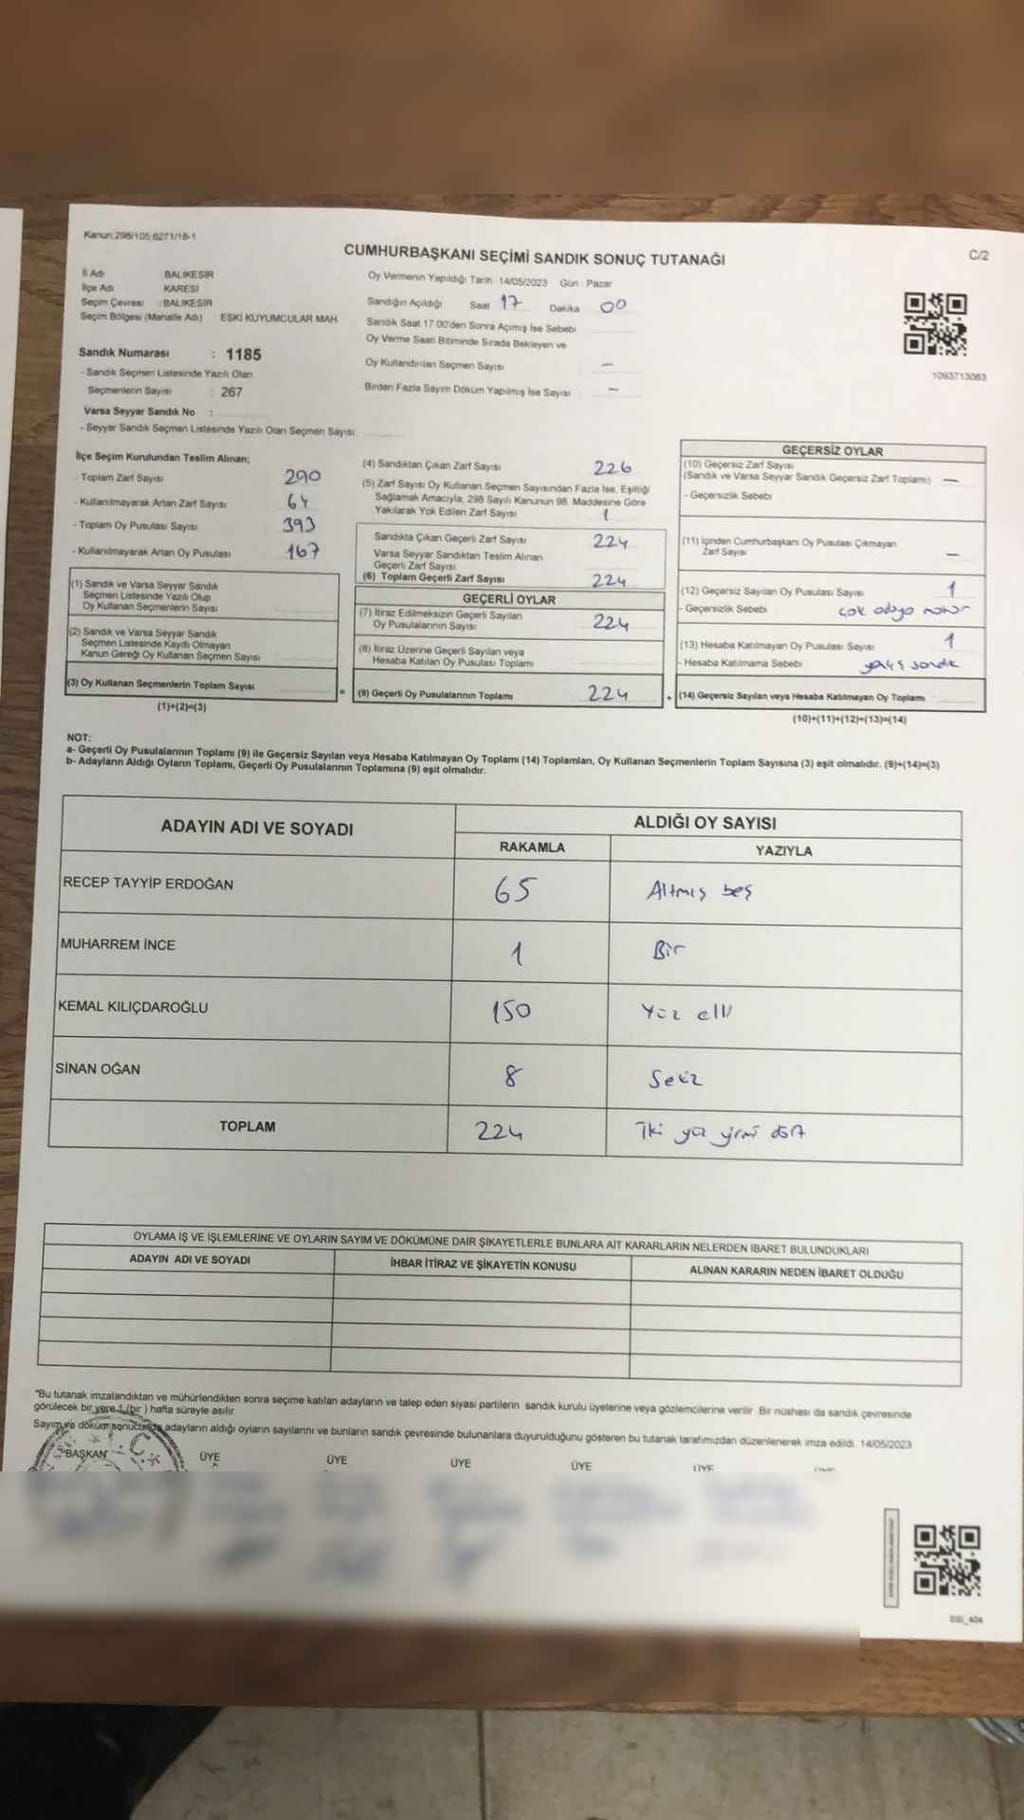 Kanun:298/105;6271/16-1
CUMHURBAŞKANI SEÇİMİ SANDIK SONUÇ TUTANAĞI
C/2
İl Adı BALIKESİR
İlçe Adı KARESİ
Seçim Çevresi :BALIKESİR
Seçim Bölgesi (Mahalle Adı) ESKİ KUYUMCULAR MAH
Sandık Numarası : 1185
- Sandık Seçmen Listesinde Yazılı Olan
Seçmenlerin Sayısı : 267
Varsa Seyyar Sandık No :
- Seyyar Sandık Seçmen Listesinde Yazılı Olan Seçmen Sayısı:
Oy Vermenin Yapıldığı Tarih 14/05/2023 Gün : Pazar
Sandığın Açıldığı Saat 17 Dakika 00
Sandık Saat 17:00'den Sonra Açmış İse Sebebi
Oy Verme Saati Bitiminde Sırada Bekleyen ve
Oy Kullandırılan Seçmen Sayısı : —
Birden Fazla Sayım Döküm Yapılmış İse Sayısı : —
1093713083
İlçe Seçim Kurulundan Teslim Alınan;
- Toplam Zarf Sayısı 290
- Kullanılmayarak Artan Zarf Sayısı 64
- Toplam Oy Pusulası Sayısı 393
- Kullanılmayarak Artan Oy Pusulası 167
(1) Sandık ve Varsa Seyyar Sandık
Seçmen Listesinde Yazılı Olup
Oy Kullanan Seçmenlerin Sayısı
(2) Sandık ve Varsa Seyyar Sandık
Seçmen Listesinde Kayıtlı Olmayan
Kanun Gereği Oy Kullanan Seçmen Sayısı
(3) Oy Kullanan Seçmenlerin Toplam Sayısı
(1)+(2)=(3)
(4) Sandıktan Çıkan Zarf Sayısı 226
(5) Zarf Sayısı Oy Kullanan Seçmen Sayısından Fazla İse, Eşitliği
Sağlamak Amacıyla, 298 Sayılı Kanunun 98. Maddesine Göre
Yakılarak Yok Edilen Zarf Sayısı 1
Sandıkta Çıkan Geçerli Zarf Sayısı 224
Varsa Seyyar Sandıktan Teslim Alınan
Geçerli Zarf Sayısı
(6) Toplam Geçerli Zarf Sayısı 224
GEÇERLİ OYLAR
(7) İtiraz Edilmeksizin Geçerli Sayılan
Oy Pusulalarının Sayısı 224
(8) İtiraz Üzerine Geçerli Sayılan veya
Hesaba Katılan Oy Pusulası Toplamı
= (9) Geçerli Oy Pusulalarının Toplamı 224 +
GEÇERSİZ OYLAR
(10) Geçersiz Zarf Sayısı
(Sandık ve Varsa Seyyar Sandık Geçersiz Zarf Toplamı) —
- Geçersizlik Sebebi
(11) İçinden Cumhurbaşkanı Oy Pusulası Çıkmayan
Zarf Sayısı —
(12) Geçersiz Sayılan Oy Pusulası Sayısı 1
- Geçersizlik Sebebi çok adaya mühür
(13) Hesaba Katılmayan Oy Pusulası Sayısı 1
- Hesaba Katılmama Sebebi yanlış sandık
(14) Geçersiz Sayılan veya Hesaba Katılmayan Oy Toplamı
(10)+(11)+(12)+(13)=(14)
NOT:
a- Geçerli Oy Pusulalarının Toplamı (9) ile Geçersiz Sayılan veya Hesaba Katılmayan Oy Toplamı (14) Toplamları, Oy Kullanan Seçmenlerin Toplam Sayısına (3) eşit olmalıdır. (9)+(14)=(3)
b- Adayların Aldığı Oyların Toplamı, Geçerli Oy Pusulalarının Toplamına (9) eşit olmalıdır.
ADAYIN ADI VE SOYADI
ALDIĞI OY SAYISI
RAKAMLA YAZIYLA
RECEP TAYYİP ERDOĞAN 65 Altmış beş
MUHARREM İNCE 1 Bir
KEMAL KILIÇDAROĞLU 150 Yüz elli
SİNAN OĞAN 8 Sekiz
TOPLAM 224 İki yüz yirmi dört
OYLAMA İŞ VE İŞLEMLERİNE VE OYLARIN SAYIM VE DÖKÜMÜNE DAİR ŞİKAYETLERLE BUNLARA AİT KARARLARIN NELERDEN İBARET BULUNDUKLARI
ADAYIN ADI VE SOYADI İHBAR İTİRAZ VE ŞİKAYETİN KONUSU ALINAN KARARIN NEDEN İBARET OLDUĞU
*Bu tutanak imzalandıktan ve mühürlendikten sonra seçime katılan adayların ve talep eden siyasi partilerin sandık kurulu üyelerine veya gözlemcilerine verilir. Bir nüshası da sandık çevresinde
görülecek bir yere 1 (bir) hafta süreyle asılır.
Sayım ve döküm sonucunda adayların aldığı oyların sayılarını ve bunların sandık çevresinde bulunanlara duyurulduğunu gösteren bu tutanak tarafımızdan düzenlenerek imza edildi. 14/05/2023
BAŞKAN ÜYE ÜYE ÜYE ÜYE ÜYE
T.C.